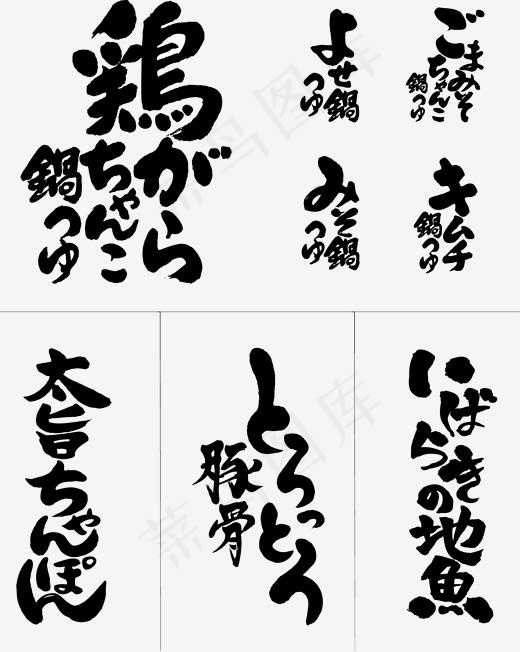 鶏がら
ちゃんこ
鍋つゆ
よせ鍋
つゆ
ごまみそ
ちゃんこ
鍋つゆ
みそ鍋
つゆ
キムチ
鍋つゆ
太旨ちゃんぽん
とろっとろ
豚骨
いばらきの地魚
菜鸟图库
菜鸟图库